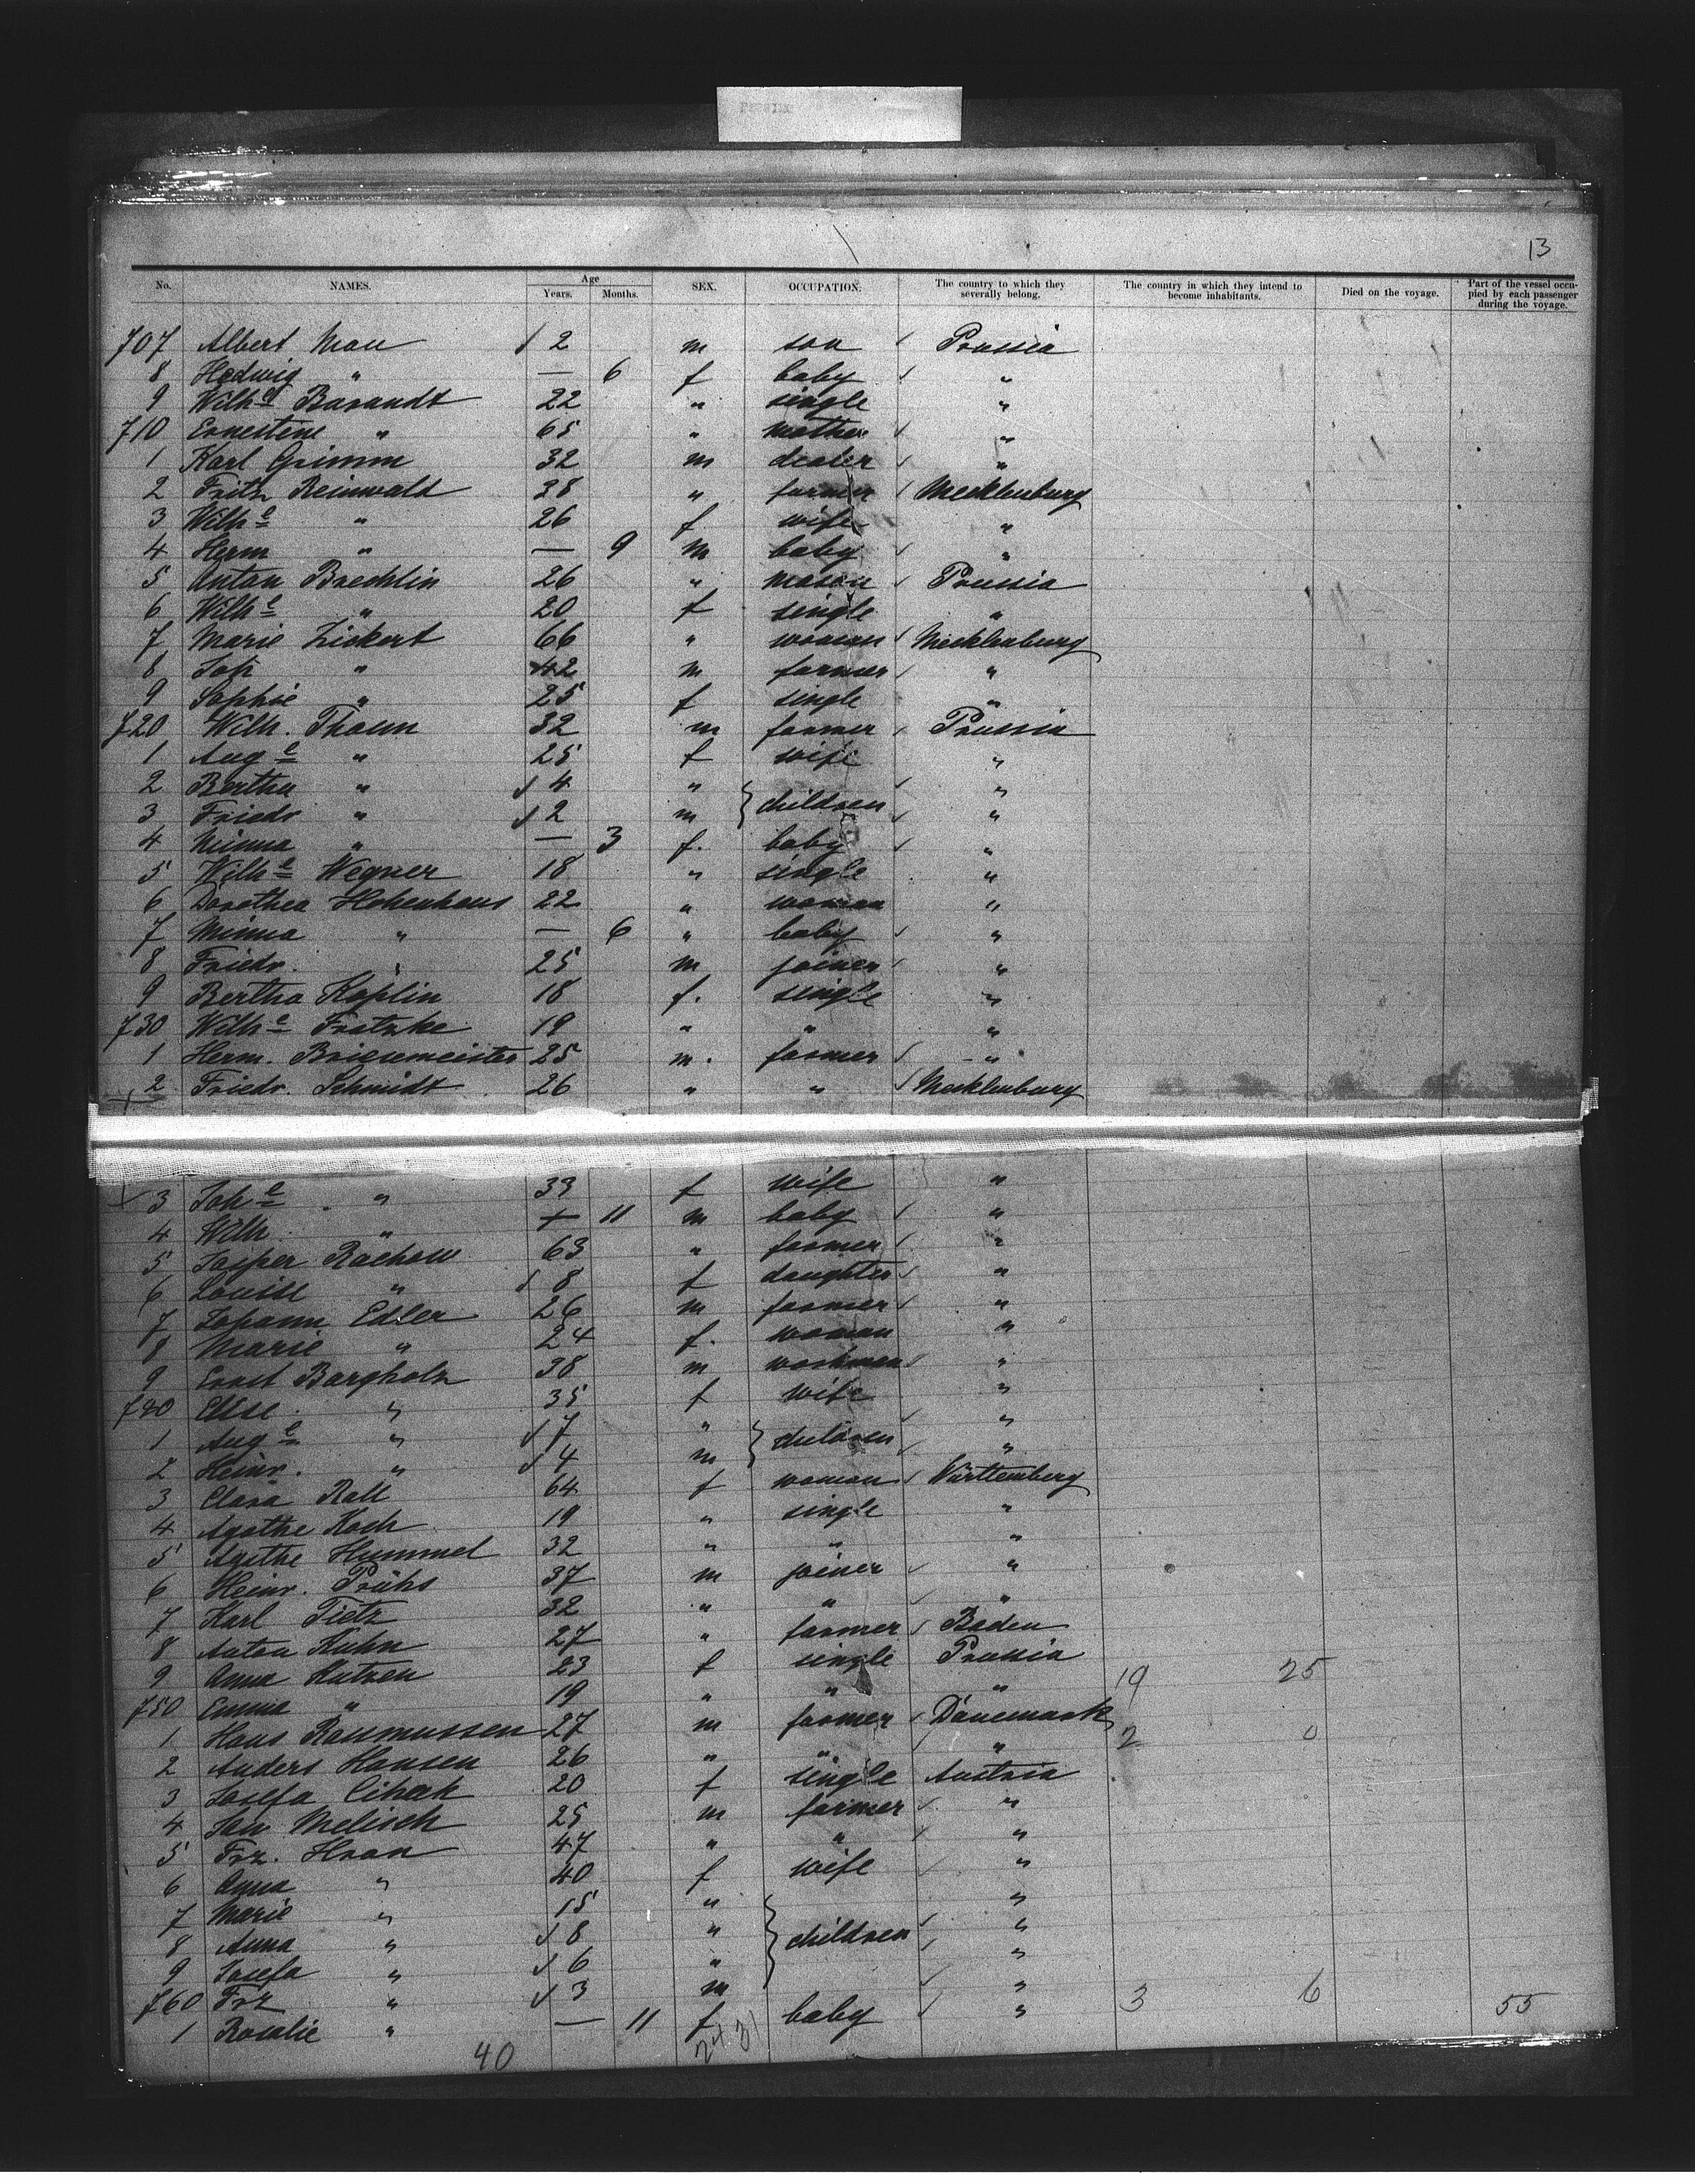 13
No. NAMES. Age Years. Months. SEX. OCCUPATION. The country to which they severally belong. The country in which they intend to become inhabitants. Died on the voyage. Part of the vessel occupied by each passenger during the voyage.
707 Albert Mau 2 m son Prussia
8 Hedwig " — 6 f baby "
9 Wilh e Barandt 22 " single "
710 Ernestine " 65 " mother "
1 Karl Grimm 32 m dealer "
2 Fritz Reinwald 38 " farmer Mecklenburg
3 Wilh e " 26 f wife "
4 Herm " — 9 m baby "
5 Anton Buechlin 26 " mason Prussia
6 Wilh e " 20 f single "
7 Marie Zickert 66 " woman Mecklenburg
8 Joh " 42 m farmer "
9 Sophie " 25 f single "
720 Wilh. Thoun 32 m farmer Prussia
1 Aug e " 25 f wife "
2 Bertha " 4 " children "
3 Friedr " 2 m "
4 Minna " — 3 f. baby "
5 Wilh e Wegner 18 " single "
6 Dorothea Hohenhaus 22 " woman "
7 Minna " — 6 " baby "
8 Friedr. " 25 m joiner "
9 Bertha Koplin 18 f. single "
730 Wilh e Fratzke 19 " " "
1 Herm. Briesemeister 25 m. farmer "
2 Friedr. Schmidt 26 " " Mecklenburg
3 Joh e " 33 f wife "
4 Wilh " — 11 m baby "
5 Jasper Rachow 63 " farmer "
6 Louise " 8 f daughter "
7 Johann Edler 26 m farmer "
8 Marie " 24 f. woman "
9 Ernst Bargholz 38 m workman "
740 Elise " 35 f wife "
1 Aug e " 7 " children "
2 Heinr. " 4 m "
3 Clara Roll 64 f woman Württemberg
4 Agathe Koch 19 " single "
5 Agathe Hummel 32 " " "
6 Heinr. Prühs 37 m joiner "
7 Karl Tietz 32 " " "
8 Anton Kuhn 27 " farmer Baden
9 Anna Hutzen 23 f single Prussia
750 Emma " 19 " " " 19 25
1 Hans Rasmussen 27 m farmer Dänemark
2 Anders Hansen 26 " " " 2 0
3 Josefa Cihak 20 f single Austria
4 Jan Melisch 25 m farmer "
5 Frz. Hron 47 " " "
6 Anna " 40 f wife "
7 Marie " 15 " children "
8 Anna " 8 " "
9 Josefa " 6 " "
760 Frz " 3 m "
1 Rosalie " — 11 f baby " 3 6 55
40 24 31